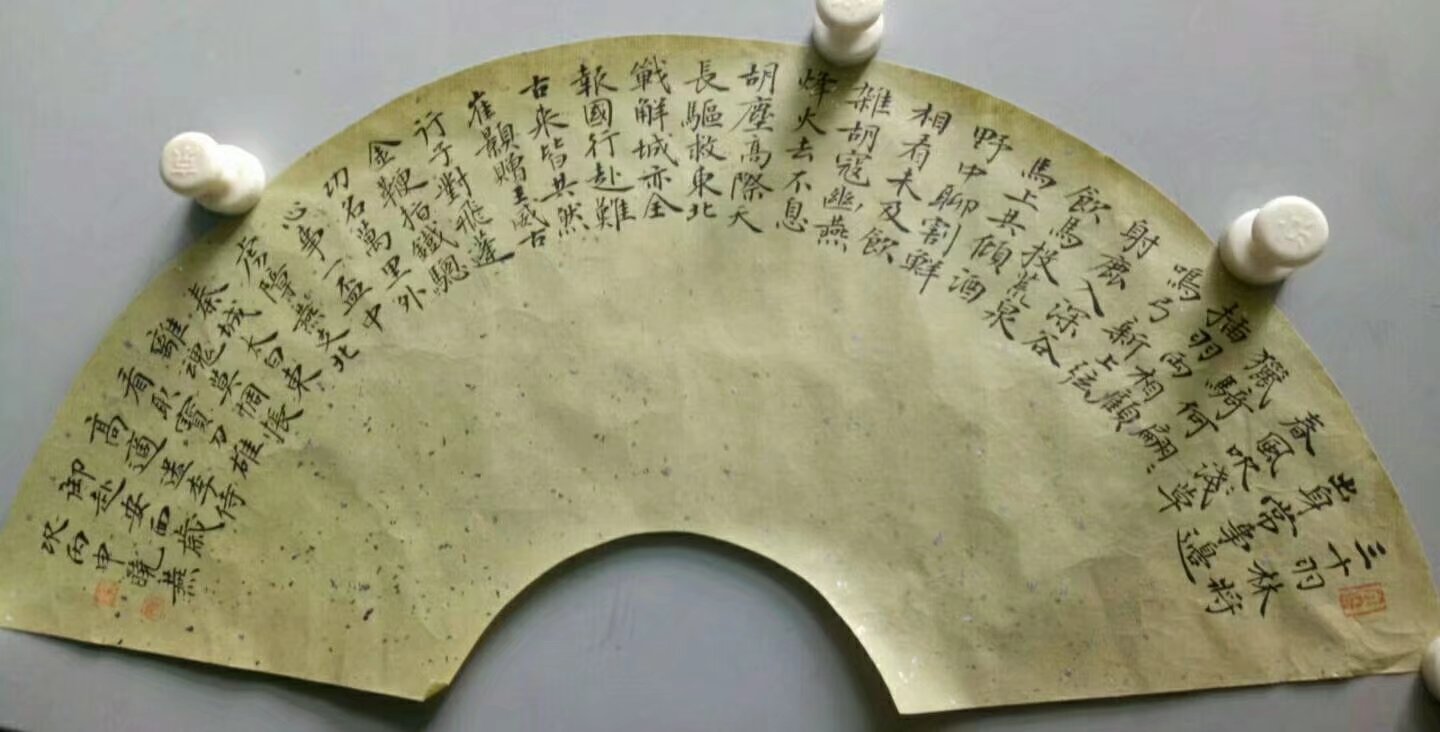 三十羽林將
出身常事邊
春風吹淺草
獵騎何翩〻
插羽兩相顧
鳴弓新上弦
射麋入深谷
飲馬投荒泉
馬上共傾酒
野中聊割鮮
相看未及飲
雜胡寇幽燕
烽火去不息
胡塵高際天
長驅救東北
戰解城亦全
報國行赴難
古來皆共然
崔顥贈王威古
行子對飛蓬
金鞭指鐵驄
功名萬里外
心事一盃中
虜障燕支北
秦城太白東
離魂莫惆悵
看取寶刀雄
高適送李侍
御赴安西歲
次丙申曉燕